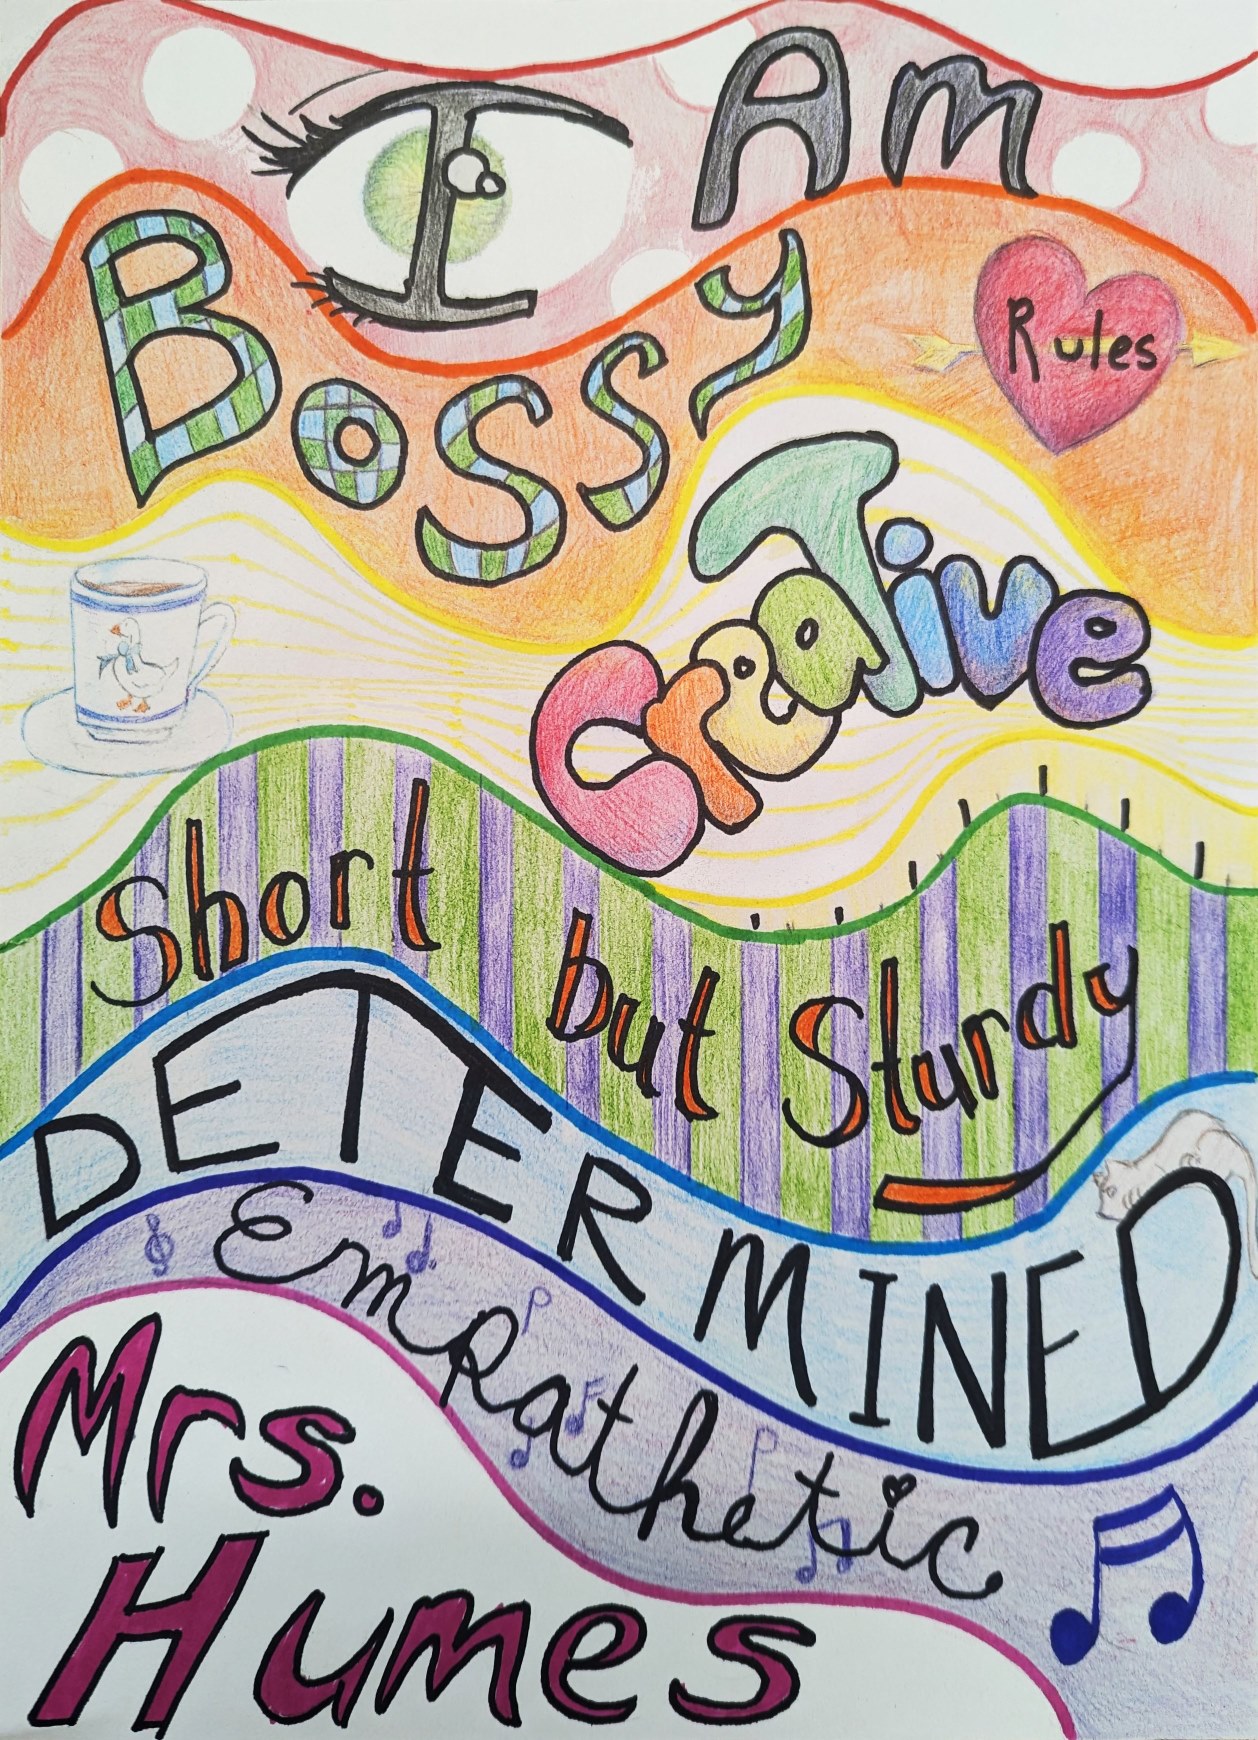 I Am
Bossy
Rules
Creative
Short but Sturdy
DETERMINED
Empathetic
Mrs.
Humes